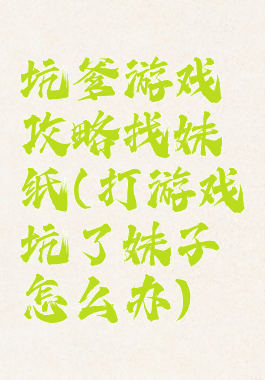 坑爹游戏
攻略找妹
纸(打游戏
坑了妹子
怎么办)